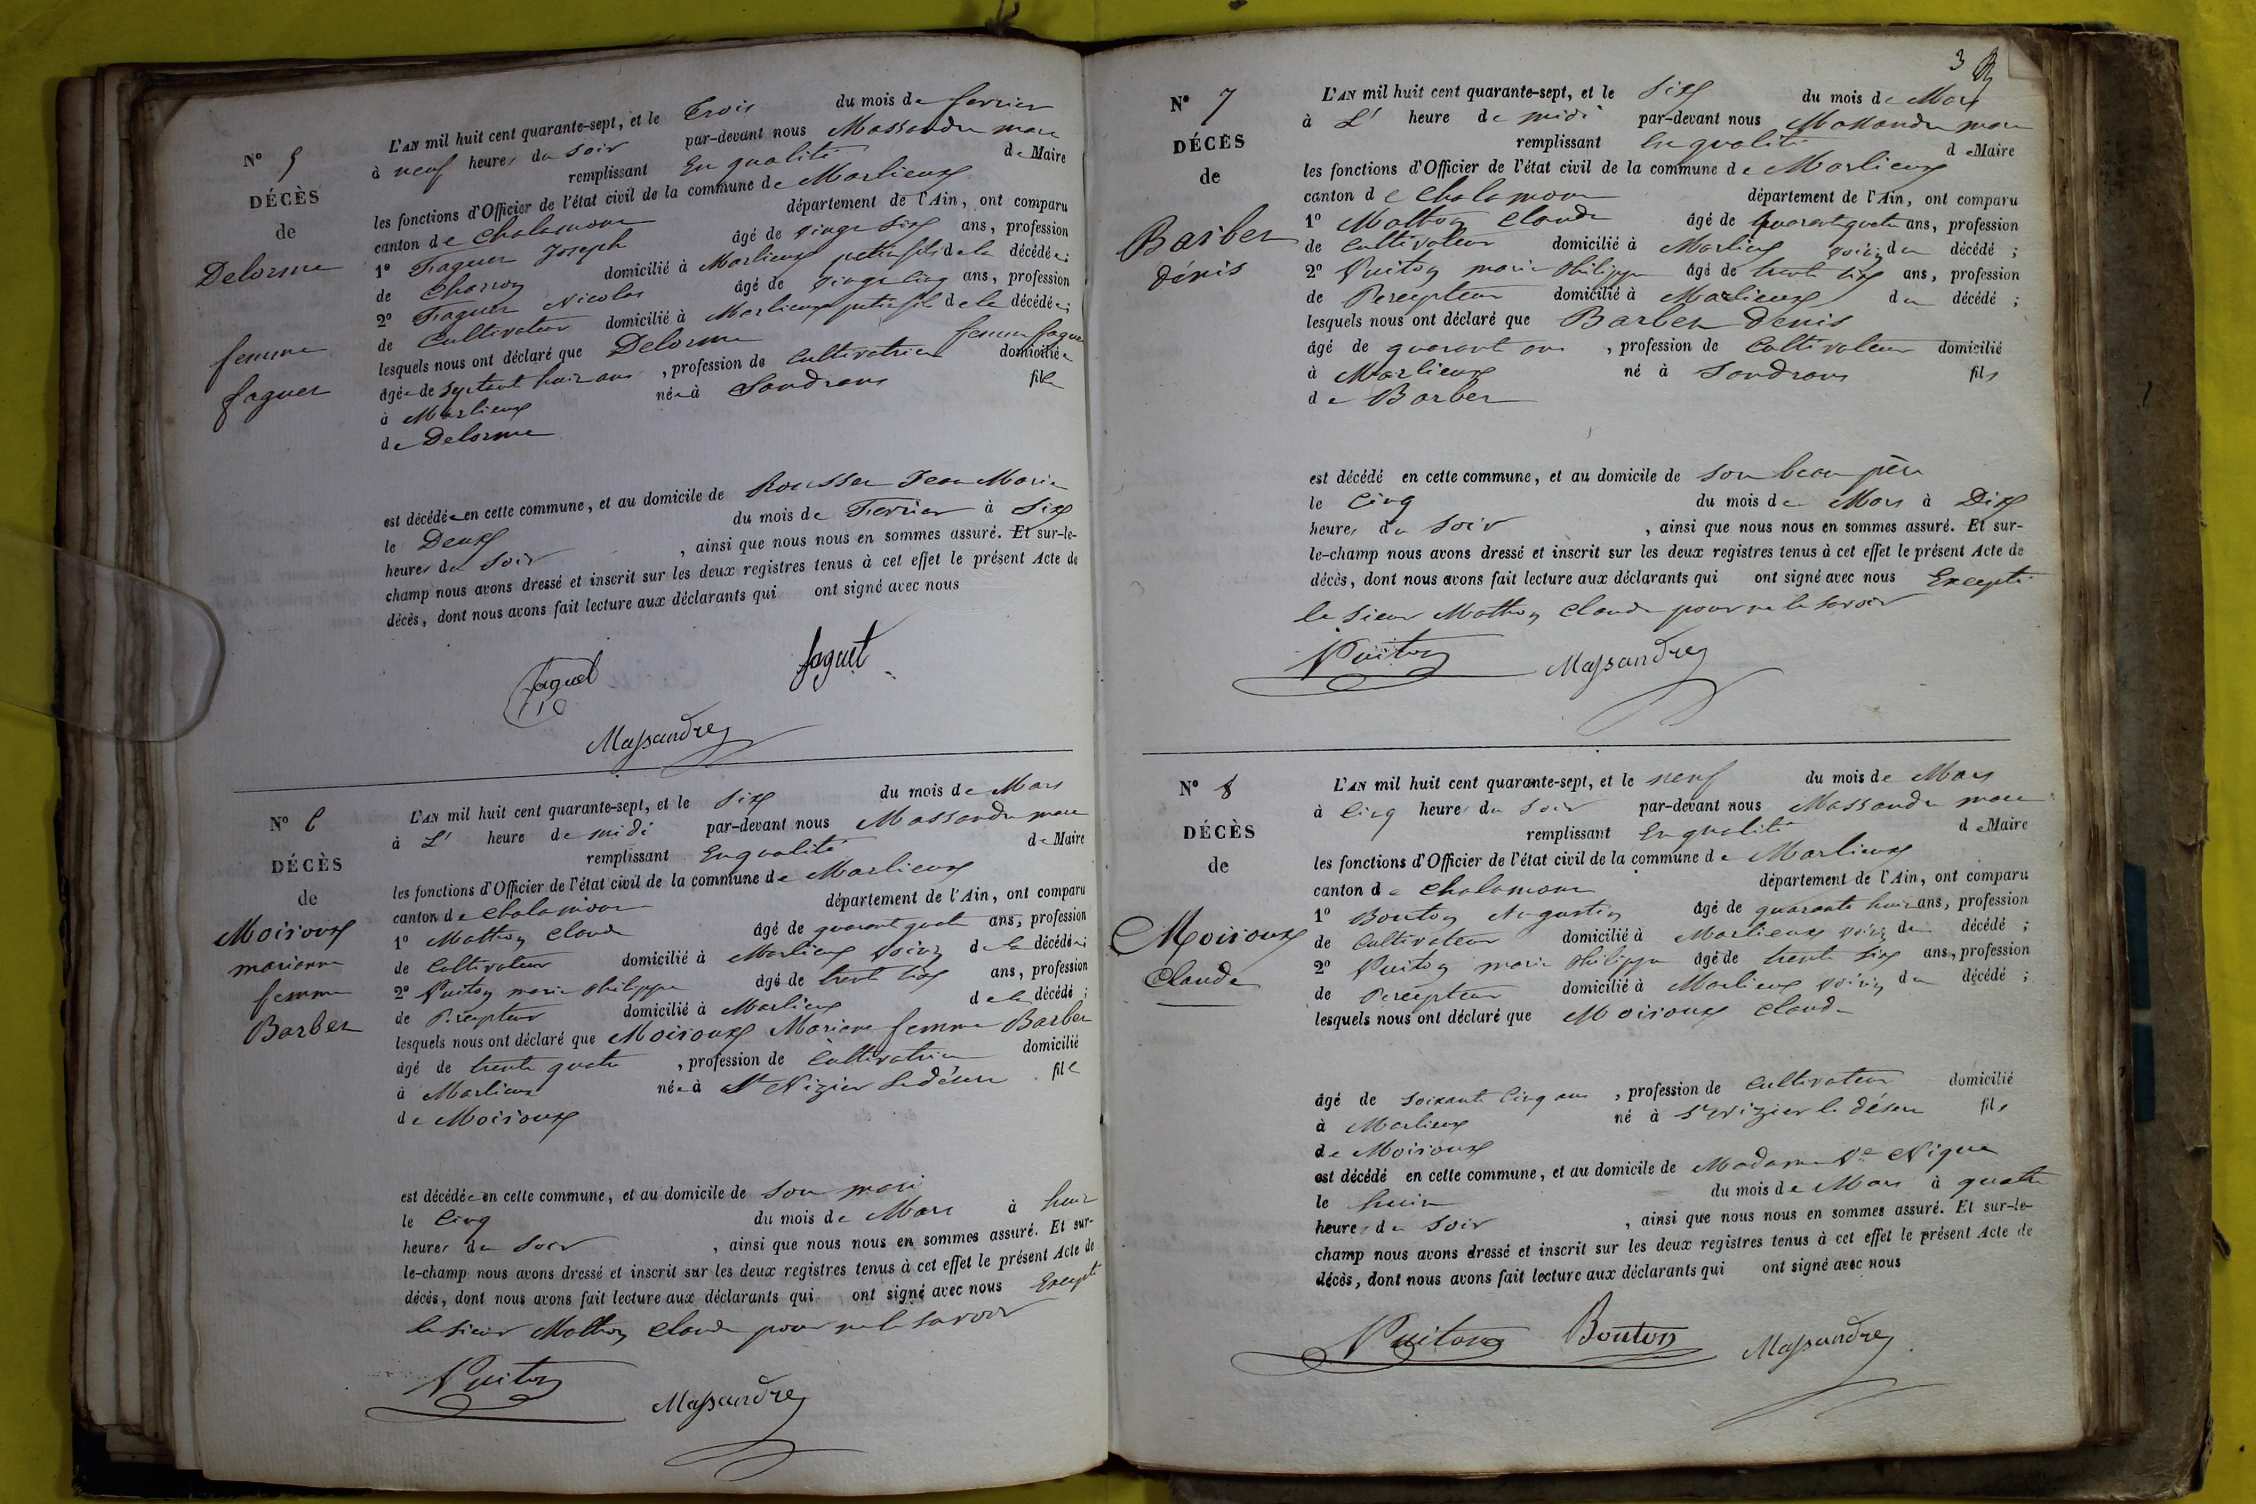 N° 5
DÉCÈS
de
Delorme
femme
faguer
L'AN mil huit cent quarante-sept, et le Trois du mois de fevrier
à neuf heures du Soir par-devant nous Massandre marc
remplissant En qualité de Maire
les fonctions d'Officier de l'état civil de la commune de Marlieux
canton de Chalamont département de l'Ain, ont comparu
1° Faguer Joseph âgé de vingt Six ans, profession
de Charron domicilié à Marlieux petit fils de la décédée;
2° Faguer Nicolas âgé de vingt Cinq ans, profession
de Cultivateur domicilié à Marlieux petit fils de la décédée;
lesquels nous ont déclaré que Delorme femme faguer
âgée de septente huit ans, profession de Cultivatrice domiciliée
à Marlieux née à Sandrans fille
de Delorme
est décédée en cette commune, et au domicile de Rousset Jean Marie
le Deux du mois de Fevrier à Six
heures du Soir, ainsi que nous nous en sommes assuré. Et sur-le-
champ nous avons dressé et inscrit sur les deux registres tenus à cet effet le présent Acte de
décès, dont nous avons fait lecture aux déclarants qui ont signé avec nous
faguet faguet
Massandre
N° 6
DÉCÈS
de
Moiroux
marianne
femme
Barber
L'AN mil huit cent quarante-sept, et le Six du mois de Mars
à L' heure de midi par-devant nous Massandre marc
remplissant En qualité de Maire
les fonctions d'Officier de l'état civil de la commune de Marlieux
canton de Chalamont département de l'Ain, ont comparu
1° Mathon Claude âgé de quarant quatre ans, profession
de Cultivateur domicilié à Marlieux voisin de la décédée;
2° Vuiton marie Philippe âgé de trente Six ans, profession
de Percepteur domicilié à Marlieux de la décédé;
lesquels nous ont déclaré que Moiroux Mariane femme Barber
âgé de trente quatre, profession de Cultivatrice domicilié
à Marlieux née à St Nizier le désert fille
de Moiroux
est décédée en cette commune, et au domicile de son mari
le Cinq du mois de Mars à huit
heures du Soir, ainsi que nous nous en sommes assuré. Et sur-
le-champ nous avons dressé et inscrit sur les deux registres tenus à cet effet le présent Acte de
décès, dont nous avons fait lecture aux déclarants qui ont signé avec nous Excepté
le sieur Mathon Claude pour ne le savoir
Vuiton Massandre
3
N° 7
DÉCÈS
de
Barber
dénis
L'AN mil huit cent quarante-sept, et le Six du mois de Mars
à L' heure de midi par-devant nous Massandre marc
remplissant En qualité de Maire
les fonctions d'Officier de l'état civil de la commune de Marlieux
canton de Chalamont département de l'Ain, ont comparu
1° Mathon Claude âgé de quarant quatre ans, profession
de Cultivateur domicilié à Marlieux voisin du décédé;
2° Vuiton marie Philippe âgé de trente six ans, profession
de Percepteur domicilié à Marlieux du décédé;
lesquels nous ont déclaré que Barber Denis
âgé de quarant ans, profession de Cultivateur domicilié
à Marlieux né à Sandrans fils
de Barber
est décédé en cette commune, et au domicile de son beau père
le Cinq du mois de Mars à Dix
heures du Soir, ainsi que nous nous en sommes assuré. Et sur-
le-champ nous avons dressé et inscrit sur les deux registres tenus à cet effet le présent Acte de
décès, dont nous avons fait lecture aux déclarants qui ont signé avec nous Excepté
le Sieur Mathon Claude pour ne le savoir
Vuiton Massandre
N° 8
DÉCÈS
de
Moiroux
Claude
L'AN mil huit cent quarante-sept, et le neuf du mois de Mars
à Cinq heures du Soir par-devant nous Massandre marc
remplissant En qualité de Maire
les fonctions d'Officier de l'état civil de la commune de Marlieux
canton de Chalamont département de l'Ain, ont comparu
1° Bouton Augustin âgé de quarante huit ans, profession
de Cultivateur domicilié à Marlieux voisin du décédé;
2° Vuiton marie Philippe âgé de trente Six ans, profession
de Percepteur domicilié à Marlieux voisin du décédé;
lesquels nous ont déclaré que Moiroux Claude
âgé de soixante Cinq ans, profession de Cultivateur domicilié
à Marlieux né à St Nizier le désert fils
de Moiroux
est décédé en cette commune, et au domicile de Madame Ve
le huit du mois de Mars à quatre
heures du Soir, ainsi que nous nous en sommes assuré. Et sur-le-
champ nous avons dressé et inscrit sur les deux registres tenus à cet effet le présent Acte de
décès, dont nous avons fait lecture aux déclarants qui ont signé avec nous
Vuiton Bouton Massandre